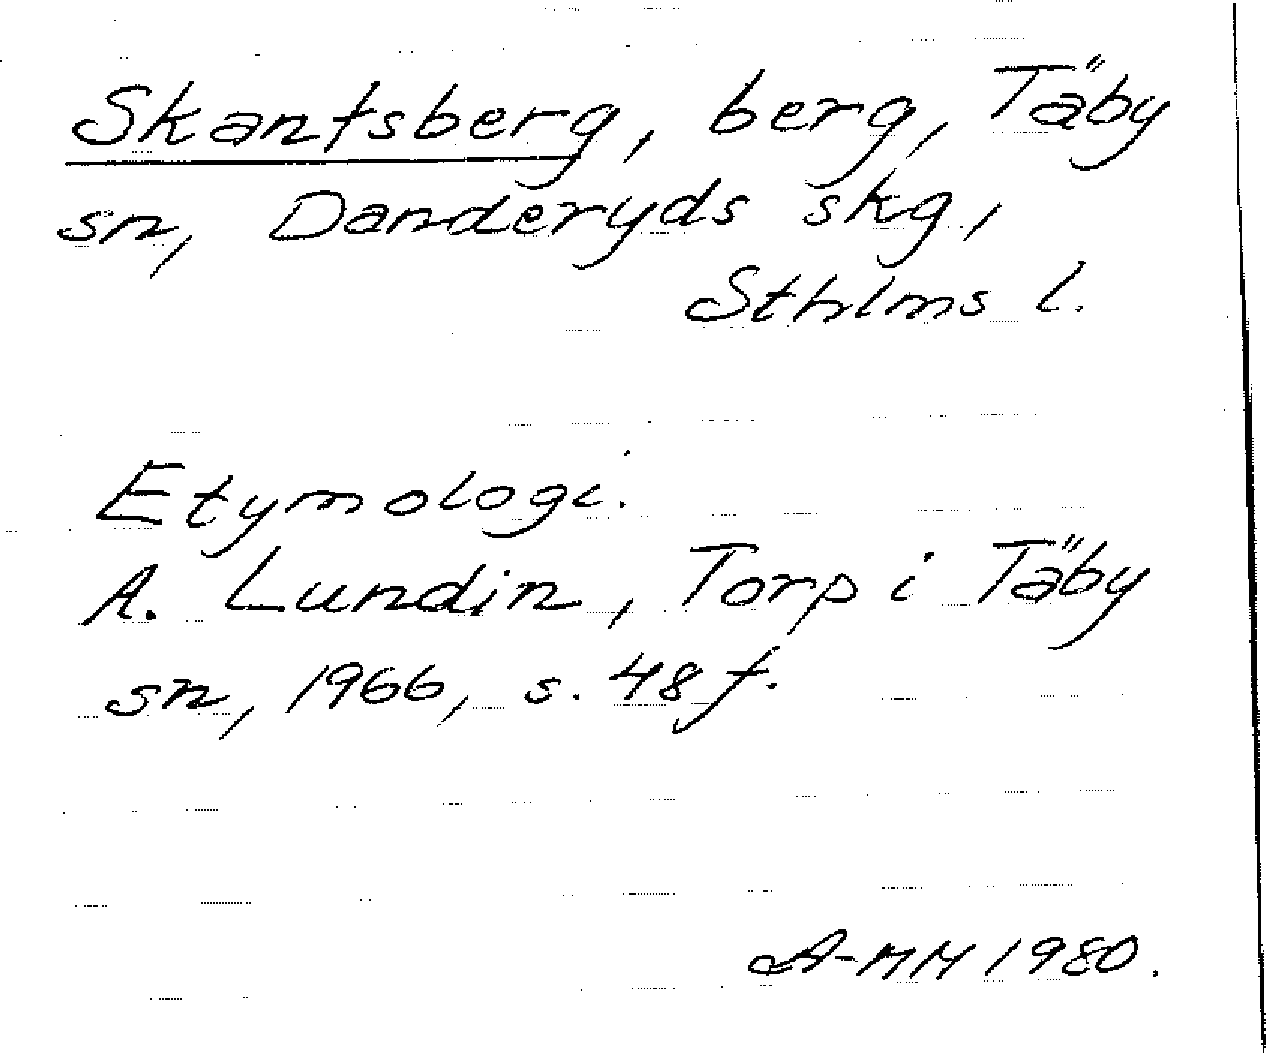 Skantsberg, berg, Täby
sn, Danderyds skg,
Sthlms l.
Etymologi.
A. Lundin, Torp i Täby
sn, 1966, s. 48 f.
A-MM 1980.